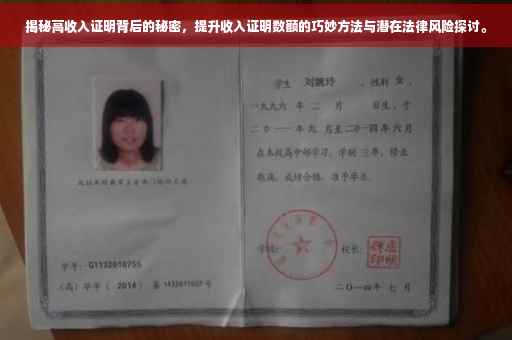 揭秘高收入证明背后的秘密，提升收入证明数额的巧妙方法与潜在法律风险探讨。
学生 刘婉玲 ，性别 女 ，
一九九六 年 二 月 日生，于
二〇一一 年 九 月至 二〇一四 年 六 月
在本校高中部学习，学制 三 年，修业
期满，成绩合格，准予毕业。
学校： 校长：
学号： G1132010755
（高）毕字（ 2014 ）第 1432011027 号
二〇一四年 七 月